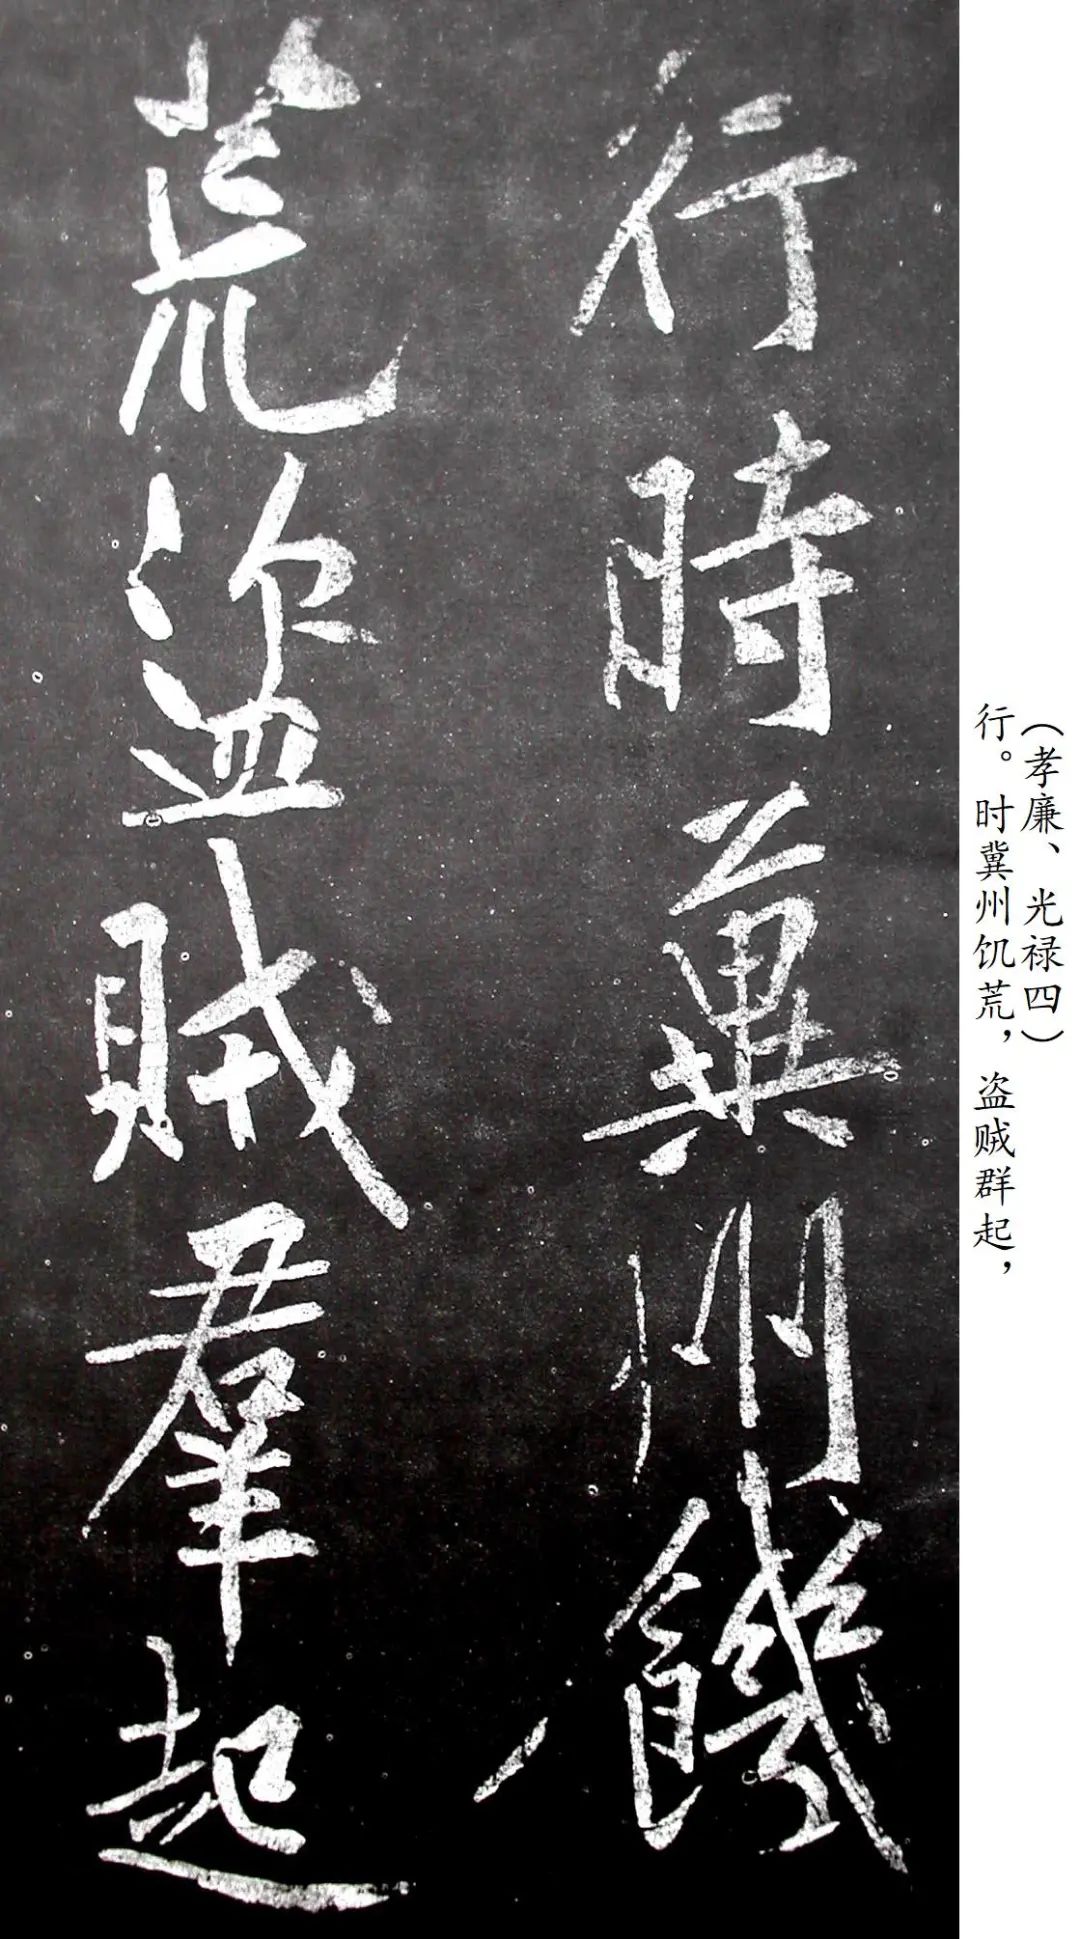 行時冀州饑
荒盗賊羣起
（孝廉、光禄四）
行。时冀州饥荒，盗贼群起，